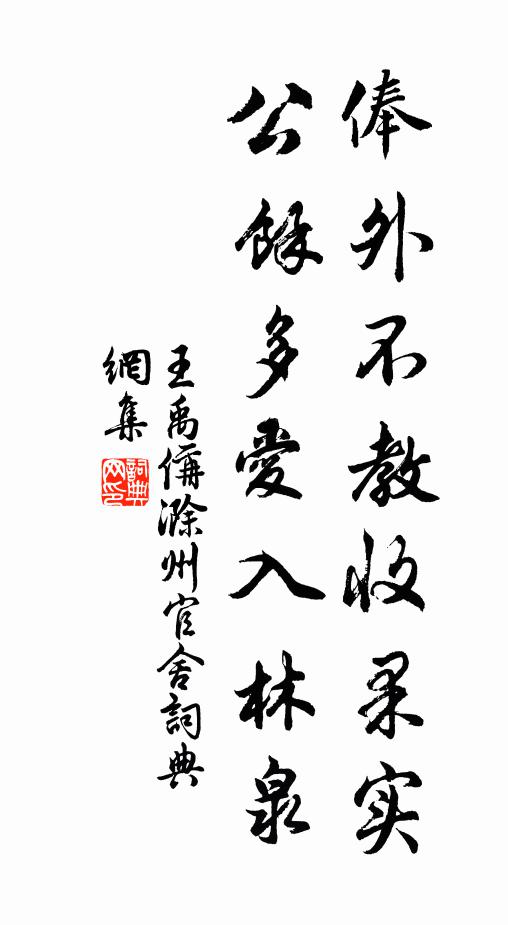 俸外不教收果实
公餘多愛入林泉
王禹偁滁州官舍詞典
網集
詞典
网印